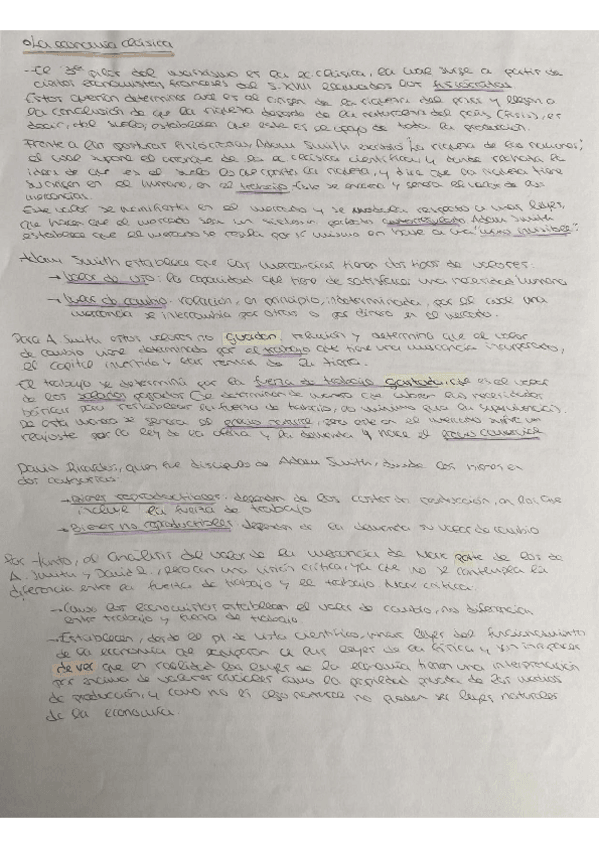 La economía clásica
- El 3er pilar del marxismo es la ec. clásica, la cual surge a partir de
ciertos economistas franceses del s. XVIII llamados los fisiócratas
Estos querían determinar cual es el origen de la riqueza del país y llegan a
la conclusión de que la riqueza depende de la naturaleza del país (Fisis), es
decir, del suelo, establecen que este es el de toda la producción.
Frente a las posturas fisiócratas, Adam Smith escribió "La riqueza de las naciones",
el cual supone el arranque de la e. clásica científica, y donde rechaza la
idea de que es el suelo es que aporta la riqueza, y dice que la riqueza tiene
su origen en el humano, en el trabajo. Este se encarna y genera el valor de las
mercancías.
Este valor se manifiesta en el mercado y se modula respecto a unas leyes,
que hacen que el mercado sea un sistema perfecto autorregulado. Adam Smith
establece que el mercado se regula por sí mismo en base a una "mano invisible".
Adam Smith establece que las mercancías tienen dos tipos de valores:
→ Valor de uso: la capacidad que tiene de satisfacer una necesidad humana
→ Valor de cambio: relación, en principio, indeterminada, por el cual una
mercancía se intercambia por otras o por dinero en el mercado.
Para A. Smith estos valores no guardan relación y determinó que el valor
de cambio viene determinado por el trabajo que tiene una mercancía incorporado,
el capital invertido y las rentas de la tierra.
El trabajo se determina por la fuerza de trabajo gastada, que es el valor
de los salarios pagados (se determinan de manera que cubren las necesidades
básicas para restablecer la fuerza de trabajo, lo mínimo para la supervivencia).
De esta manera se genera el precio natural, pero este en el mercado sufre un
reajuste por la ley de la oferta y la demanda y nace el precio comercial
David Ricardo, quien fue discípulo de Adam Smith, divide los bienes en
dos categorías:
→ Bienes reproductibles: dependen de los costes de producción, en los que
incluye la fuerza de trabajo
→ Bienes no reproductibles: dependen de la demanda su valor de cambio
Por tanto, el análisis del valor de la mercancía de Marx parte de los de
A. Smith y David R., pero con una visión crítica, ya que no se contempla la
diferencia entre la fuerza de trabajo y el trabajo. Marx critica:
→ Como los economistas establecen el valor de cambio, no diferencian
entre trabajo y fuerza de trabajo
→ Establecen, desde el pt de vista científico, unas leyes del funcionamiento
de la economía que a las leyes de la física y son incapaces
de ver que en realidad las leyes de la economía tienen una interpretación
por encima de valores sociales como la propiedad privada de los medios
de producción, y como no es algo natural no pueden ser leyes naturales
de la economía.